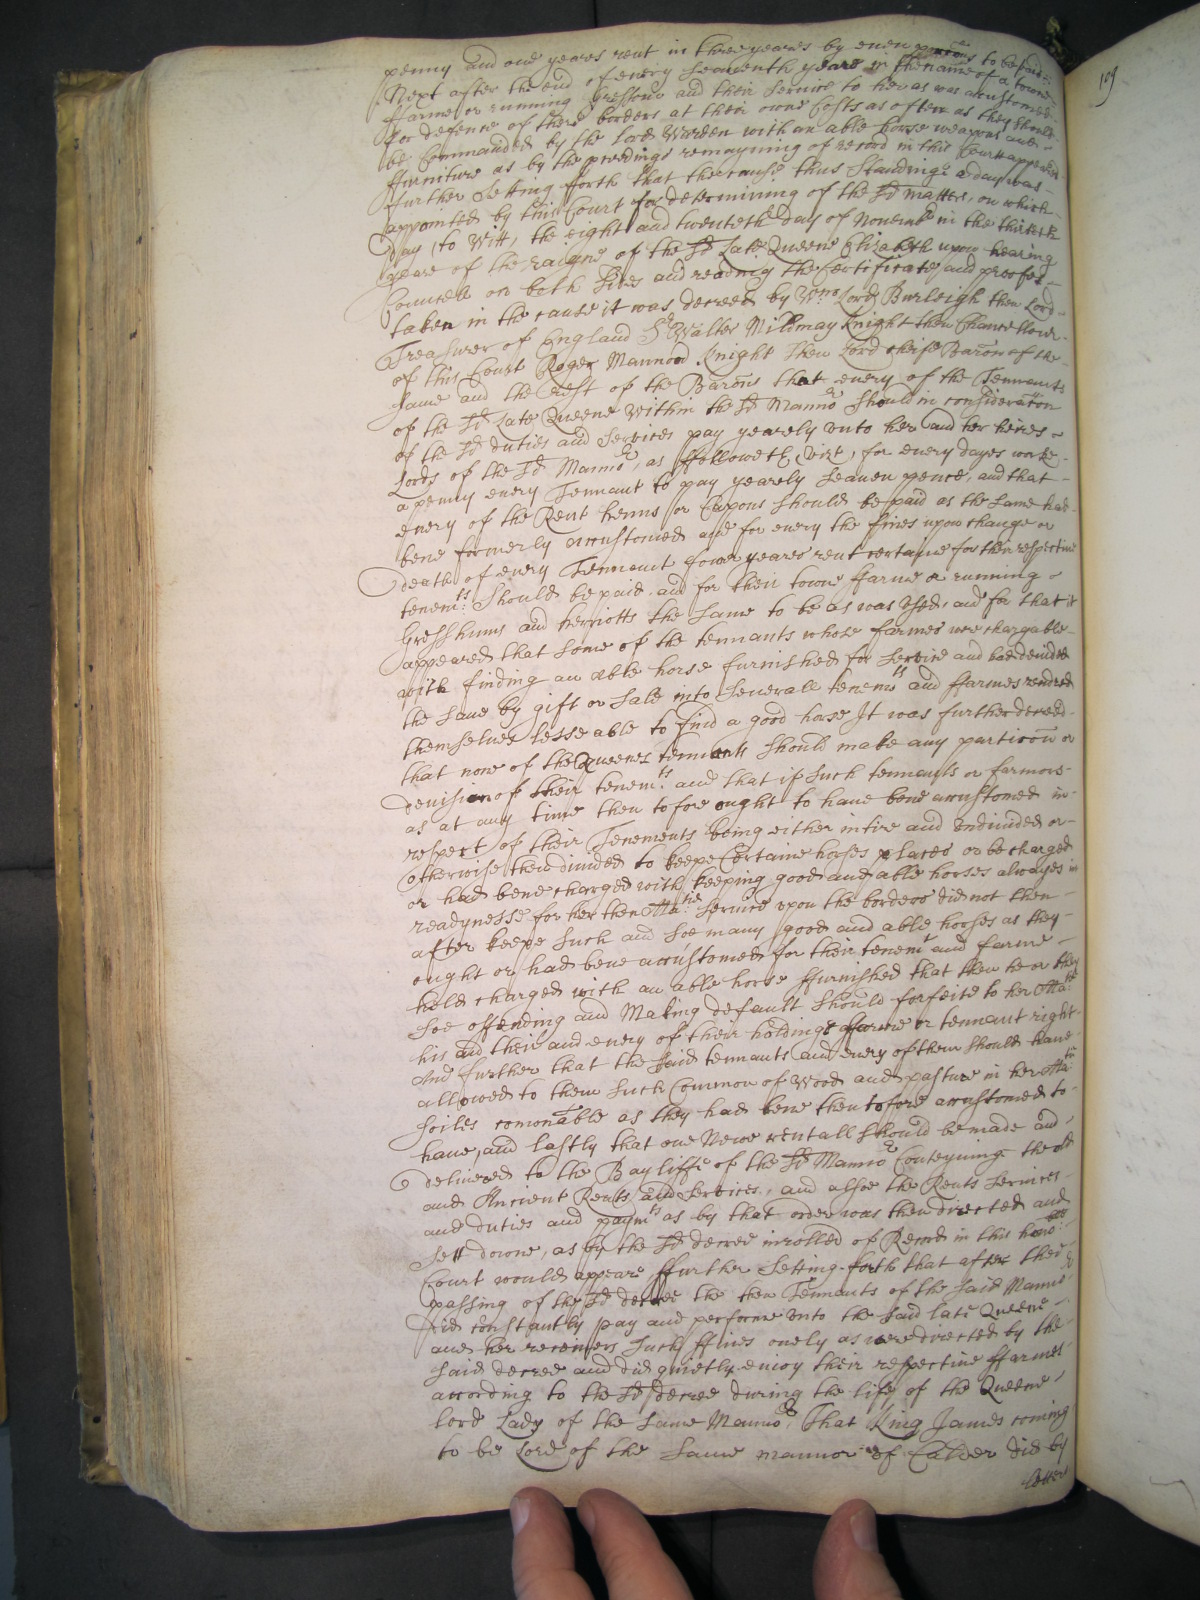 penny and one yeares rent in three yeares by even porcons to be paid
Next after the end of every seaventh yeare in the name of a towne
ffarme or running Gressome and their service to her as was accustomed
for defence of there borders at their owne Costs as often as they should
be Commanded by the Lord Warden with an able horse weapons and
ffurniture as by the preedings remayning of record in this Court appeared
further Setting forth that the cause thus Standinge a day was
appointed by this Court for determining of the sd Matters, on which
day (to Witt) the eight and twentieth day of Novembr in the thirtith
yeare of the raigne of the sd Late Queene Elizabeth upon hearing
Councell on both sides and reading the Certificate and proofes
taken in the cause it was decreed by Wm Lord Burleigh then Lord
Treasurer of England Sr Walter Mildmay Knight then Chancellour
of this Court Roger Manwood Knight then Lord cheife Baron of the
same and the rest of the Barons that every of the Tennants
of the sd Late Queene within the sd Mannor should in consideration
of the sd duties and services pay yearely unto her and her heires
Lords of the sd Mannor, as ffolloweth (vizt) for every dayes worke
a penny every Tennant to pay yearely Seaven pence, and that
every of the Rent henns or Capons should be paid as the same had
bene formerly accustomed and for every the fines upon change or
death of every Tennant fower yeares rent certaine for their respective
tenemts should be paid, and for their towne ffarme or running
Gresshums and herriotts the same to be as was used, and for that it
appeared that some of the tennants whose farmes were chargable
with finding an able horse furnished for service and had devided
the same by gift or sale into severall tenemts and ffarmes rendred
themselves lesse able to find a good horse It was further decreed
that none of the Queenes tennants should make any particon or
devision of their tenemts and that if such tennants or farmors
as at any time then tofore ought to have bene accustomed in
respect of their Tenements being either intire and undivided or
otherwise then divided to keepe Certaine horses places or be charged
or had bene charged with keeping good and able horses alwayes in
readynesse for her then Matie service upon the borders did not then
after keepe such and soe many good and able horses as they
ought or had bene accustomed for their tenemt and farme
held charged with an able horse ffurnished that then he or they
soe offending and Making default should forfeite to her Matie
his and their and every of their holdinge ffarme or tennant right
And further that the said tennants and every of them should have
allowed to them such Common of Wood and pasture in her Mats
soiles comonable as they had bene then tofore accustomed to
have, and lastly that one Newe rentall should be made and
delivered to the Bayliffe of the sd Mannor Conteyning the old
and Ancient Rents and Services, and alsoe the Rents services
and duties and paymts as by that order was then directed and
sett downe, as by the sd decree inrolled of Record in this honoble
Court would appeare ffurther Setting forth that after the
passing of the sd decree the then Tennants of the said Mannor
did constantly pay and performe unto the said late Queene
and her receivers such ffines onely as were directed by the
said decree and did quietly enioy their respective ffarmes
according to the sd decree during the life of the Queene
lord Lady of the same Mannor. That King James coming
to be Lord of the same mannor of Calder did by
letters
109